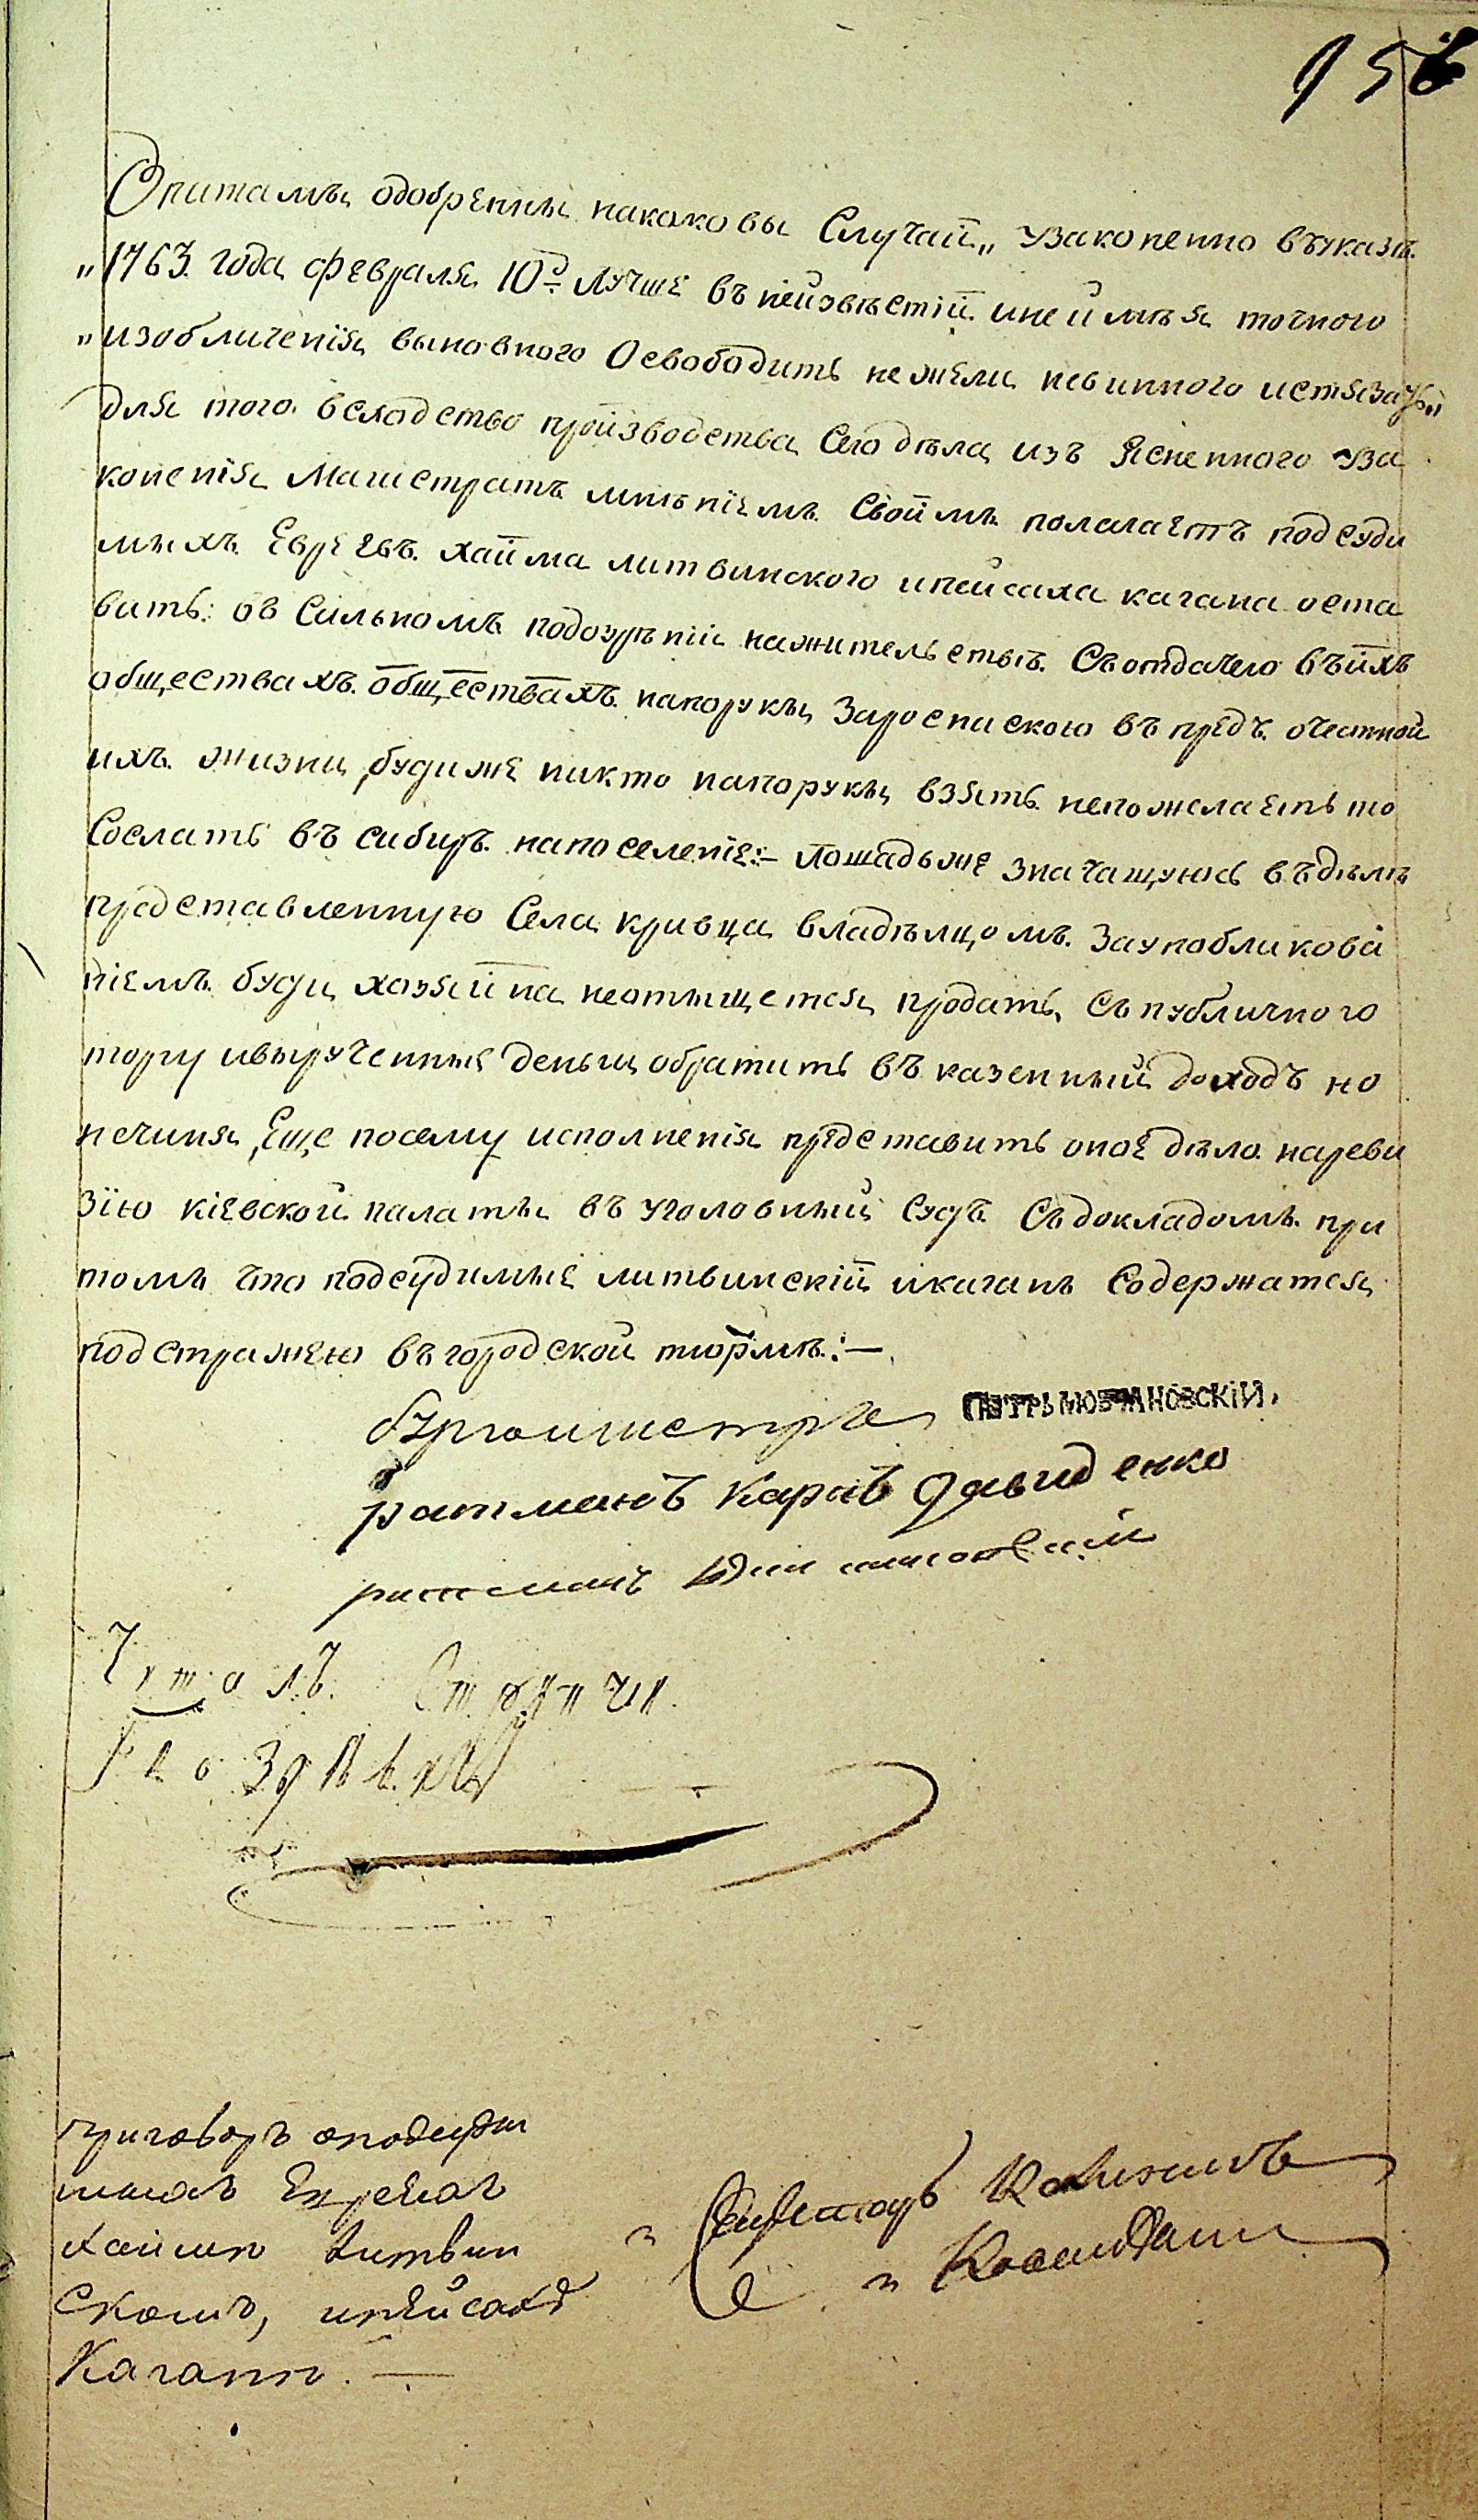 956
Опитамы одобренны накаковы Случай„ узаконенно въуказѣ
„1763 года февраля 10д Лучше въ неизвѣстій инеимѣя точного
„изобличенїя выновного Освободить нежели невинного истязать„
для того вслѣдство произво­дства Сего дѣла изъ Ясненного уза
коненїя Магистратъ мнѣнїемъ Своимъ полагаетъ подсуди
мыхъ Евреевъ хайма литвинского ипейсаха кагана оста
вить: въ Сильномъ подозрѣнїи нажительствѣ Съотдачею въихъ
обществахъ обществахъ напоруки Зароспискою въ предъ очестной
ихъ жизни, буди же никто напоруки взять непожелаетъ то
Сослать въ сибирь напоселенїе:– Лошадь же значащуюсь въдѣлѣ
представленную Села кривца владѣлцомъ Заупобликова
нїемъ буди хозяина неотищется продать съпубличного
торгу ивырученные деньги обратить въ казенный доходъ но
нечиня Еще посему исполненїя представить оное дѣло нареви
зїю кїевской палаты въ уголовный Судъ Съдокладомъ при
томъ что подсудимые литвинскїй икаганъ Содержатся
подстражею въгородской тюрмѣ:—
бургомистръ
ратманъ Карпъ Давиденко
ратманъ
Читалъ Стряпчи
приговоръ оподсуди
мыхъ Евреяхъ
Хаимѣ Литвин
Скомъ, ипейсахѣ
Каганѣ. —
Секретарь